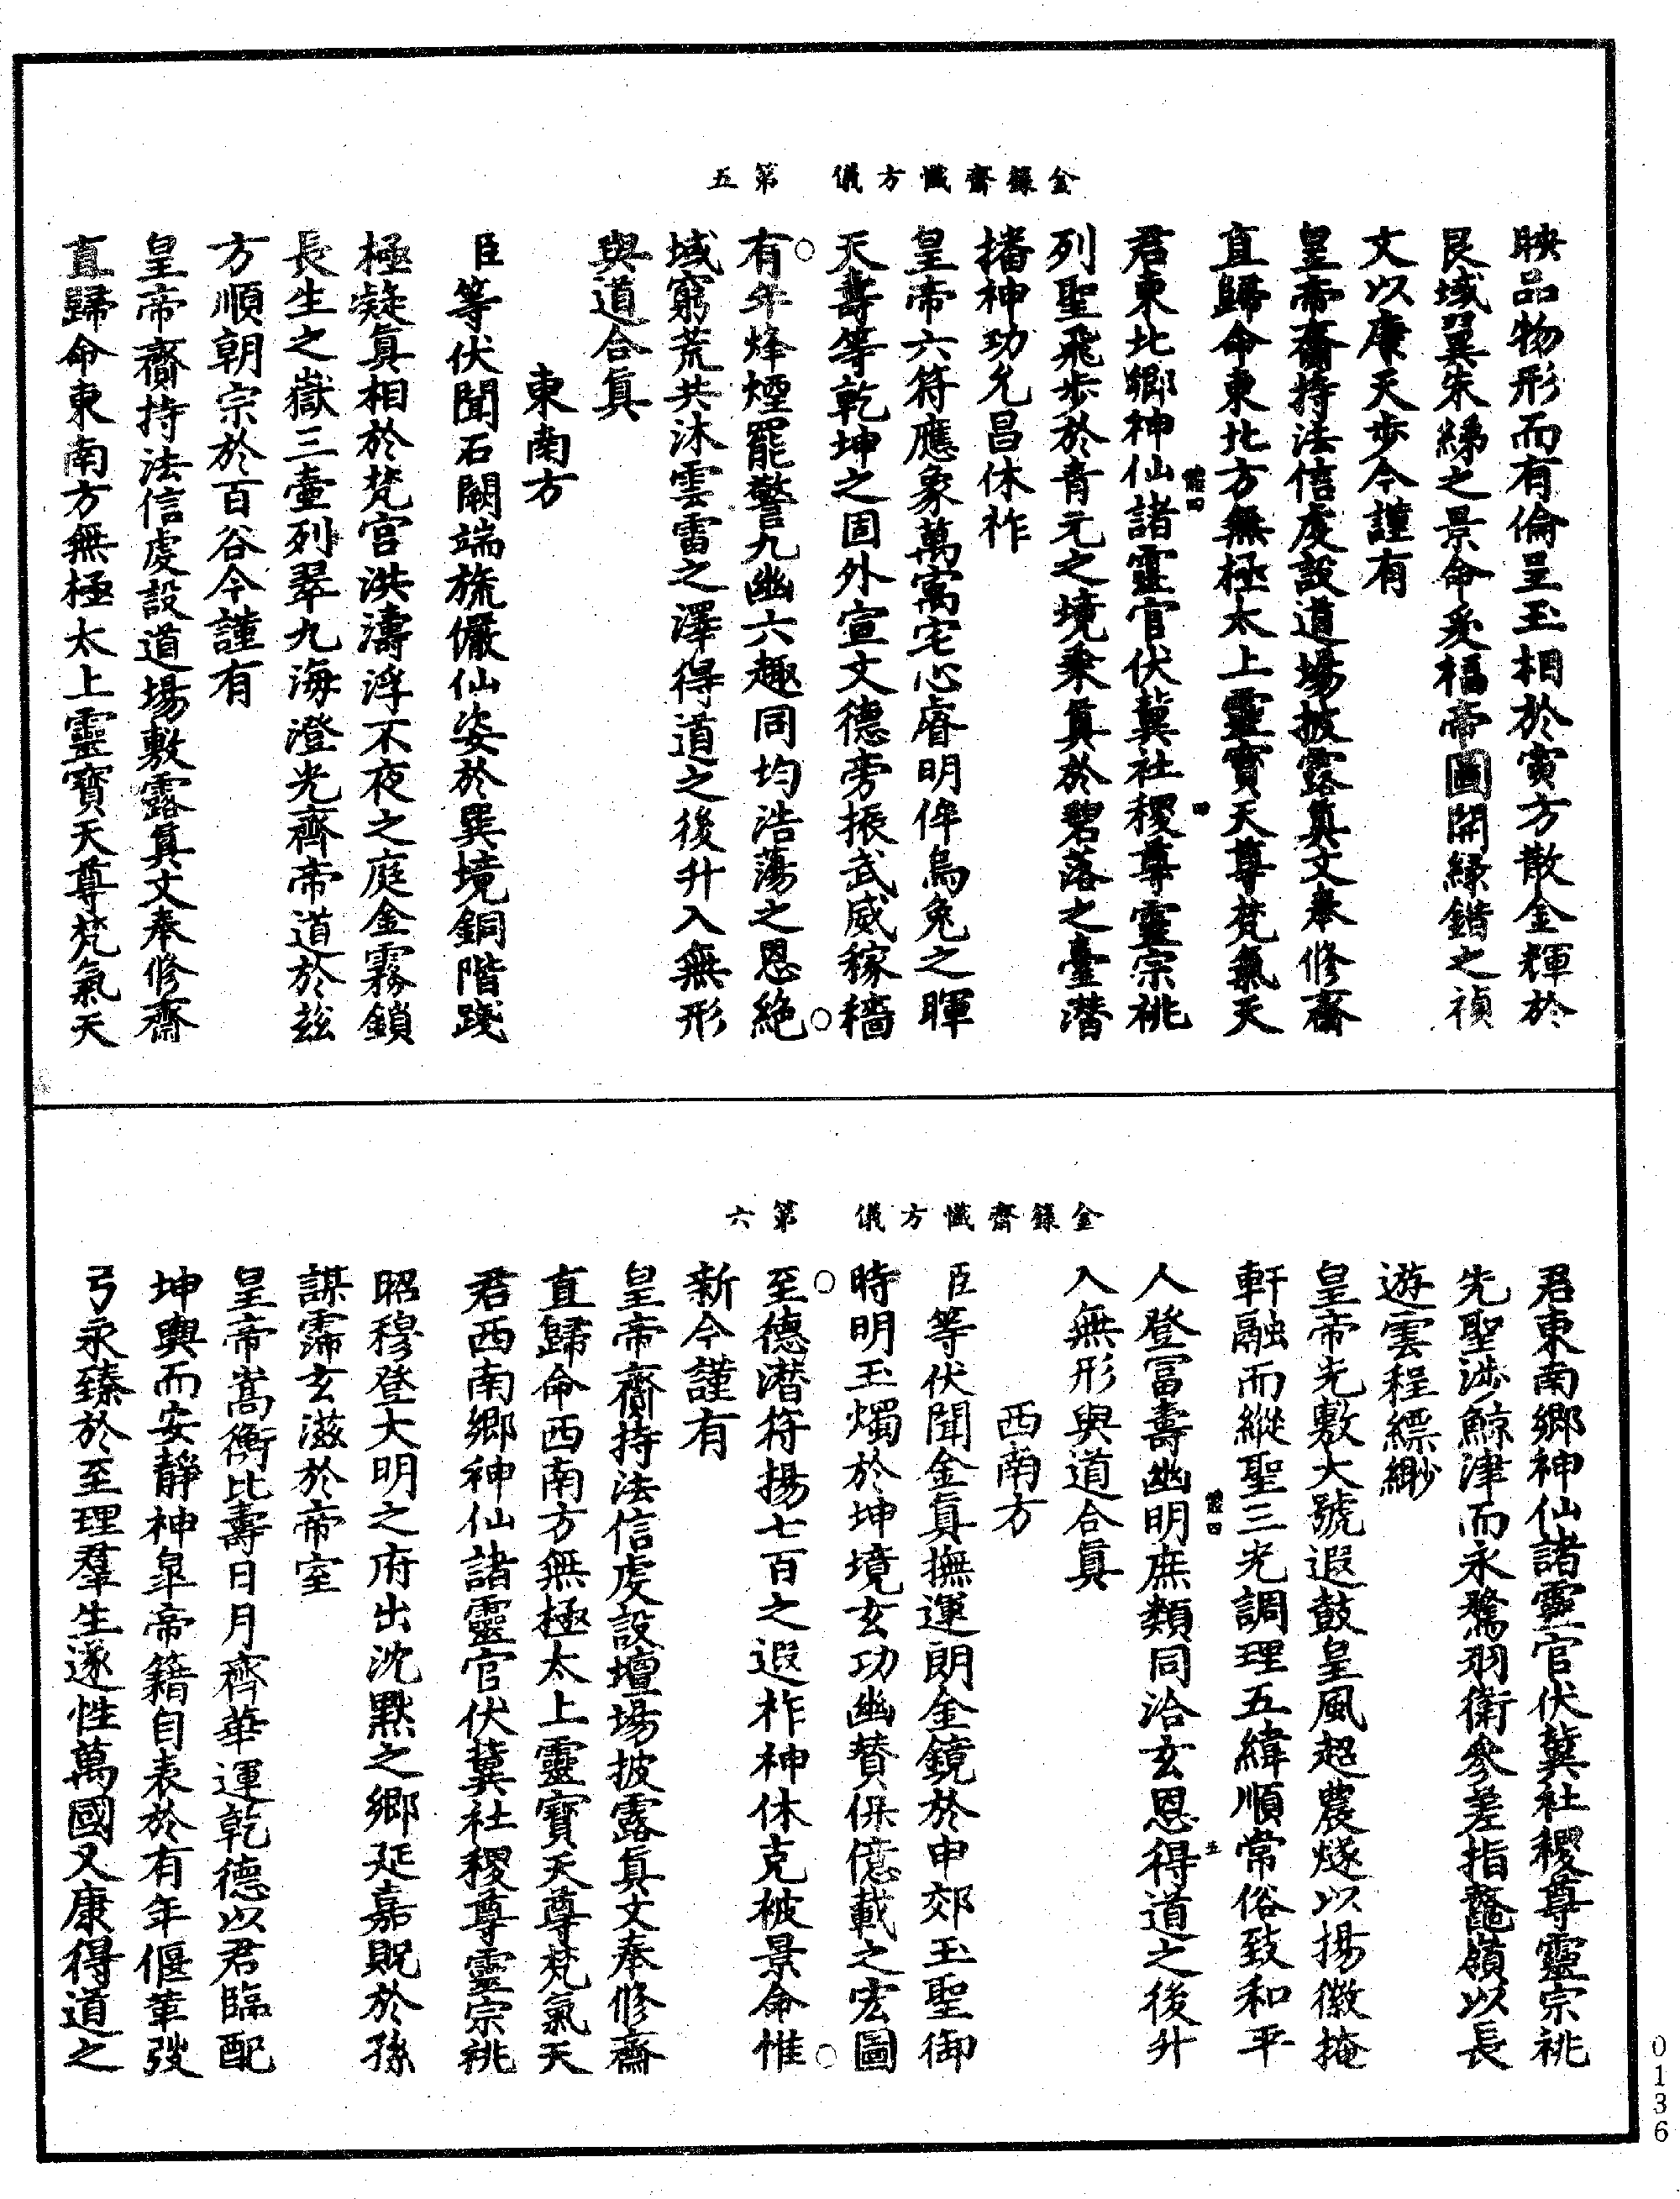 金籙齋懺方儀　第五
映品物形而有倫呈玉相於寅方散金輝於
艮域翼朱綈之景命爰福帝圖開緑錯之禎
文以康天步今謹有
皇帝齎持法信虔設道場披露真文奉修齋
直歸命東北方無極太上靈寶天尊梵氣天
君東北鄉神仙諸靈官伏冀社稷尊靈宗祧
列聖飛步於青元之境乗真於碧落之臺潜
搘神功允昌休祚
皇帝六符應象萬㝢宅心睿明侔烏兔之暉
天壽等乾坤之固外宣文德旁振武威稼穡
有年烽煙罷警九幽六趣同均浩蕩之恩絶
域窮荒共沐雲雷之澤得道之後升入無形
與道合真
東南方
臣等伏聞石闕端旒儼仙姿於巽境銅階踐
極凝真相於梵宫洪濤浮不夜之庭金霧鎖
長生之嶽三壷列翠九海澄光齊帝道於兹
方順朝宗於百谷今謹有
皇帝齎持法信虔設道場敷露真文奉修齋
直歸命東南方無極太上靈寶天尊梵氣天
金籙齋懺方儀　第六
君東南鄉神仙諸靈官伏冀社稷尊靈宗祧
先聖渉鯨津而永騖羽衛參差指鼇嶺以長
遊雲程縹緲
皇帝光敷大號遐鼓皇風超農燧以揚徽掩
軒融而縱聖三光調理五緯順常俗致和平
人登冨壽幽明庶類同洽玄恩得道之後升
入無形與道合真
西南方
臣等伏聞金真撫運朗金鏡於申郊玉聖御
時明玉燭於坤境玄功幽賛保億載之宏圖
至德潜符揚七百之遐祚神休克被景命惟
新今謹有
皇帝齎持法信虔設壇場披露真文奉修齋
直歸命西南方無極太上靈寶天尊梵氣天
君西南鄉神仙諸靈官伏冀社稷尊靈宗祧
昭穆登大明之府出沈黙之鄉延嘉貺於孫
謀霈玄滋於帝室
皇帝嵩衡比壽日月齊華運乾德以君臨配
坤輿而安靜神皐帝籍自表於有年偃革弢
弓永臻於至理羣生遂性萬國乂康得道之
0136